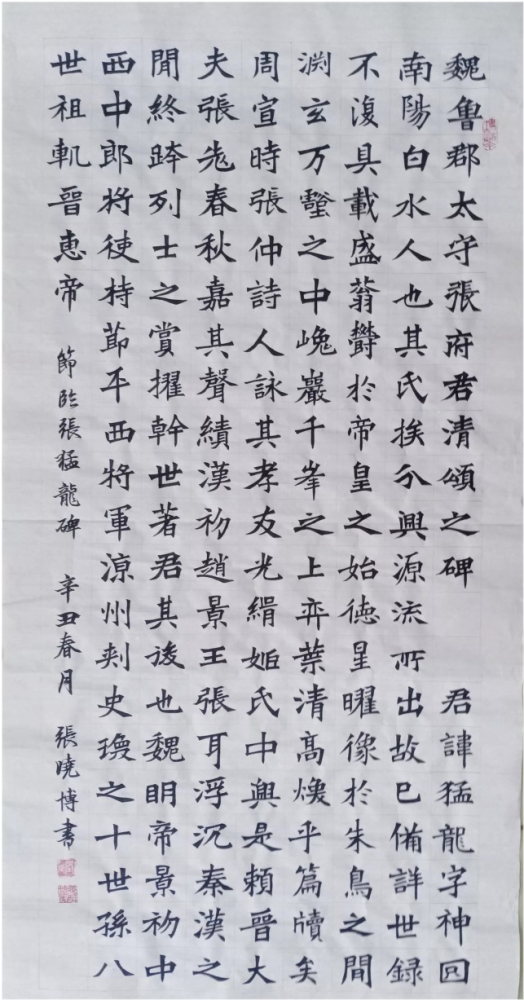 魏魯郡太守張府君清頌之碑 君諱猛龍字神冏
南陽白水人也其氏挨分興源流所出故已備詳世録
不復具載盛蓊欝於帝皇之始德星曜像於朱鳥之間
渊玄万壑之中巉巖千峯之上弈葉清高煥乎篇牘矣
周宣時張仲詩人詠其孝友光緝姬氏中興是賴晉大
夫張老春秋嘉其聲績漢初趙景王張耳浮沉秦漢之
閒終跨列士之賞擢幹世著君其後也魏明帝景初中
西中郎将使持節平西将軍涼州刺史瓊之十世孫八
世祖軌晉惠帝 節臨張猛龍碑 辛丑春月 張曉博書